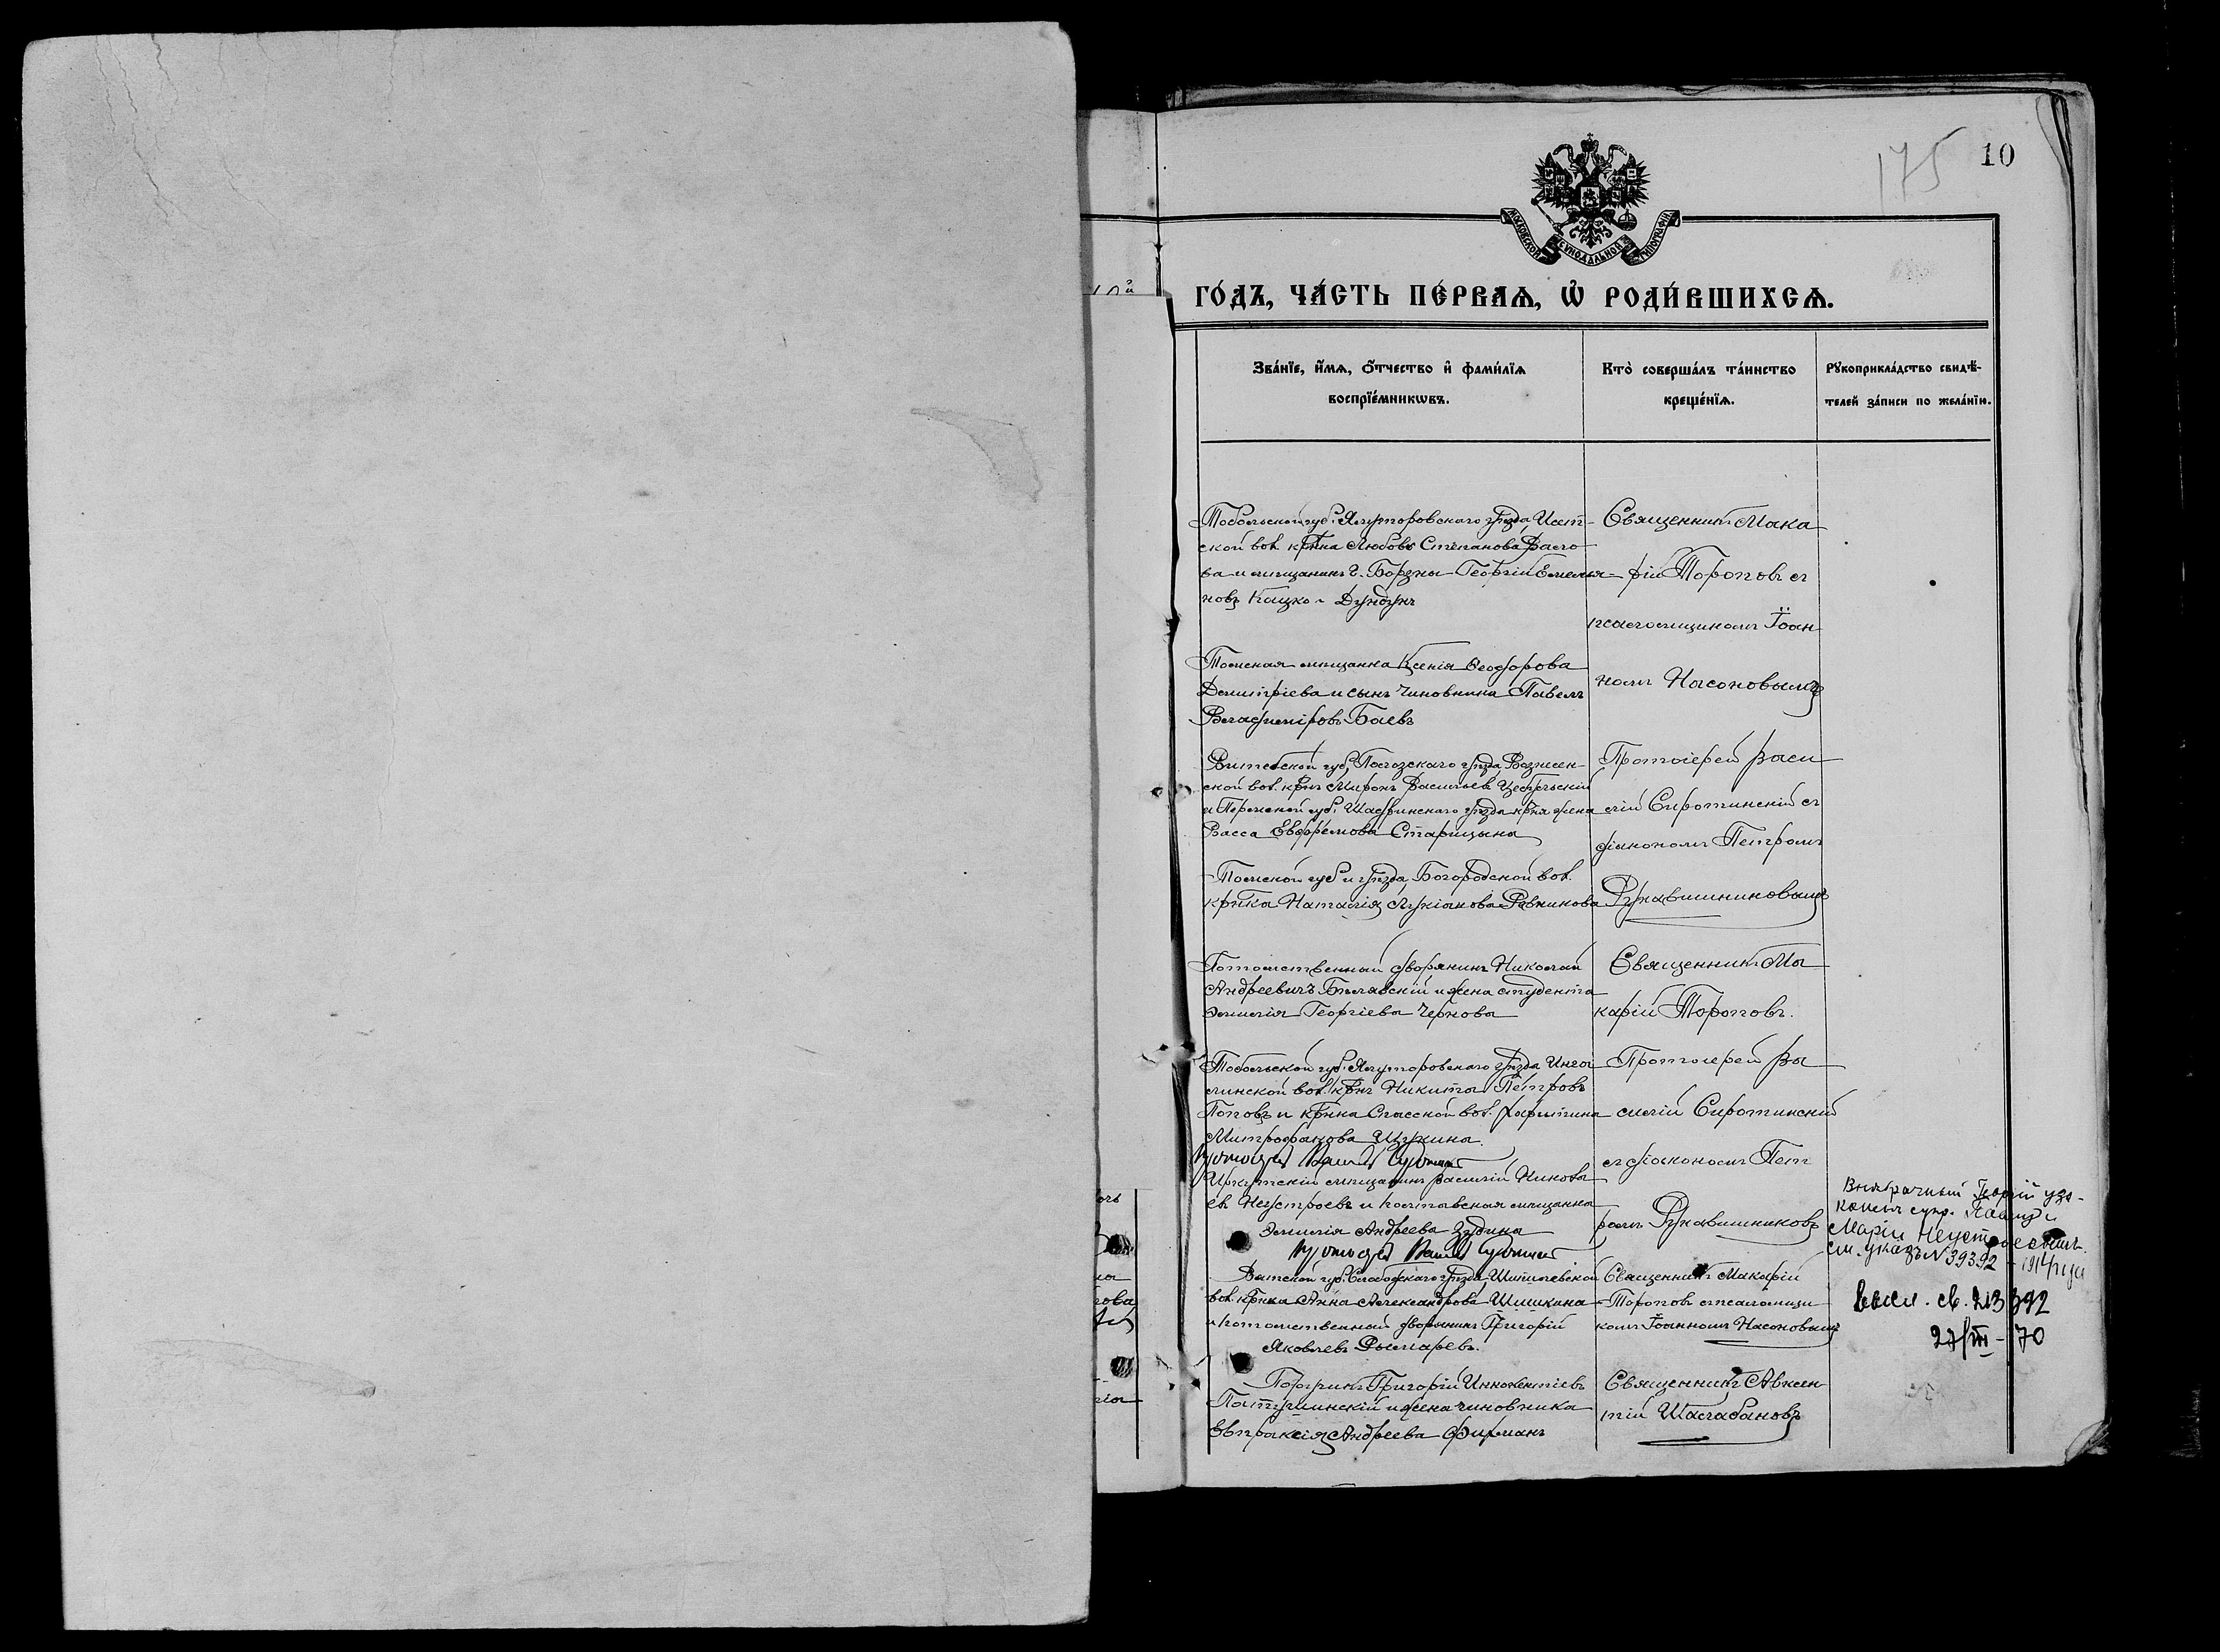 175 10
МОСКОВСКОЙ СѴНОДАЛЬНОЙ ТИПОГРАФІИ
ГО́ДЪ, ЧА́СТЬ ПЕ́РВАѦ, Ѽ РОДИ́ВШИХСѦ.
Зва́нїе, и҆́мѧ, ѻ҆́тчество и҆ фами́лїѧ
воспрїе́мникѡвъ.
Кто̀ соверша́лъ та́инство
креще́нїѧ.
Рꙋкоприкла́дство свидѣ́-
телей за́писи по жела́нїю.
Тобольской губ. Ялуторовскаго уѣзда, Исет-
ской вол. кр̅нка Любовь Степанова
ва и мѣщанинъ г. Борзны Георгій Емелья-
новъ Кацко-Дундукъ
Священникъ Мака
рій Тороповъ съ
псаломщикомъ Іоан
номъ Насоновымъ
Томская мѣщанка Ксенія Ѳеодорова
Димитріева и сынъ чиновника Павелъ
Владиміровъ Баевъ
Витебской губ. Полоцкаго уѣзда Вознесен-
ской вол. крнъ Миронъ Васильевъ
и Пермской губ. Шадринскаго уѣзда крня жена
Васса Евфремова Старицына
Протоіерей Васи
лій Сиротинскій съ
діакономъ Петромъ
Рукавишниковымъ
Томской губ. и уѣзда, Богородской вол.
крнка Наталія Лукіанова Равникова
Потомственный дворянинъ Николай
Андреевичъ Бѣлявскій и жена студента
Эмилія Георгіева Чернова
Священникъ Ма
карій Тороповъ.
Тобольской губ. Ялуторовскаго уѣзда Ингa
линской вол. крнъ Никита Петровъ
Поповъ и крнка Спасской вол. Харитина
Митрофанова Щукина.
Протоіерей Ва
силій Сиротинскій
съ діакономъ Пет
ромъ Рукавишниковъ
Протоіерей Василій Сиротинскій
Иркутскій мѣщанинъ Василій
евъ Неустроевъ и мѣщанка
Эмилія Андреева Зудина
Протоіерей Василій Сиротинскій
Внѣбрачный Георгій узa-
коненъ супр. и
Маріи Неустроевыми.
см. указъ № 39392 - 1914 года
Вятской губ. Слободскаго уѣзда,
вол. крнка Анна Александрова Шишкина
и потомственный дворянинъ Григорій
Яковлевъ Рымаревъ.
Священникъ Макарій
Тороповъ съ псаломщи
комъ Іоанномъ Насоновымъ
высл. св. 213 392
27/III-70
Григорій Иннокентіевъ
Патушинскій и жена чиновника
Евпраксія Андреева Фирманъ
Священникъ Авксен
тій Шалабановъ